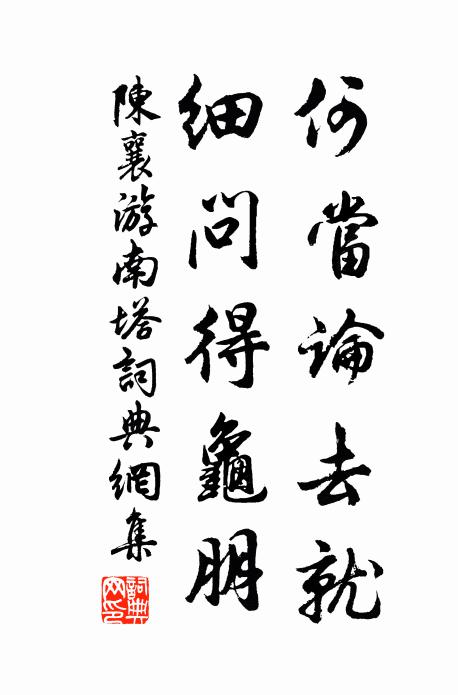 何當論去就
細問得龜朋
陳襄游南塔詞典網集
詞典網印